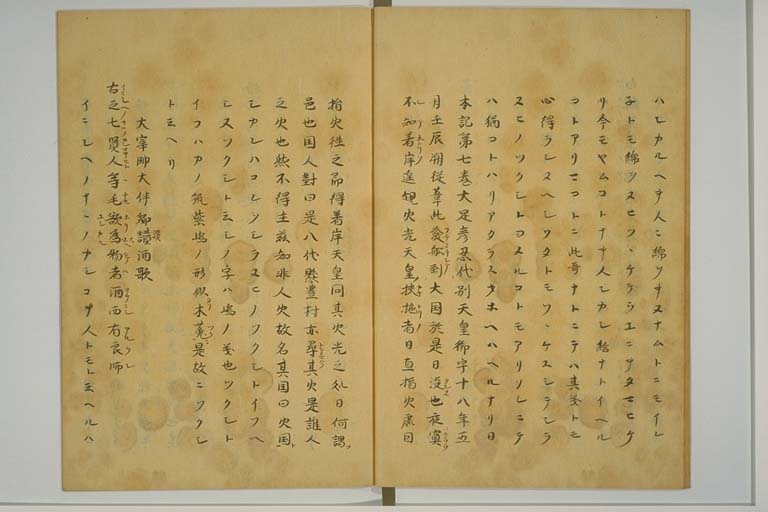 ハヒカルヘキ人ニ綿ツヲスナムトニモイレ
子トモ綿ツヌヒツヽケラヽエニサタマヒケ
リ今モヤムコトナキ人シカシ給ナトイヘル
コトアリマコトニ此哥ナトニテハ其差トモ
心得ラレスヘシワタトモツヽケスシテシラ
ヌヒノツクシトヨメルコトモアリソレニテ
ハ猶コトハリアクラスタホヘハヘルナリ日
本記第七巻大足彦忍代別天皇御宇十八年五
月壬辰朔従葦北發舩到大国於是日没也夜冥
不知着岸遥視火光天皇挾抄者曰直指火處因
指火往之即得着岸天皇問其火光之処曰何謂
邑也国人對曰是八代縣豊村亦尋其火是誰人
之火也然不得主茲知非人火故名其国曰火国
シカレハコレツシラヌヒノツクシトイフヘ
シスツクシト云ミノ字ハ嶋ノ差也ツクシト
イフハカノ筑紫嶋ノ形似木菟是故ニツクシ
トミヘリ
大宰帥大伴卿讃酒歌
古之七賢人等毛欲為物者酒西有良師
イニシヘノナヽノカシコキ人トモトミヘルハ